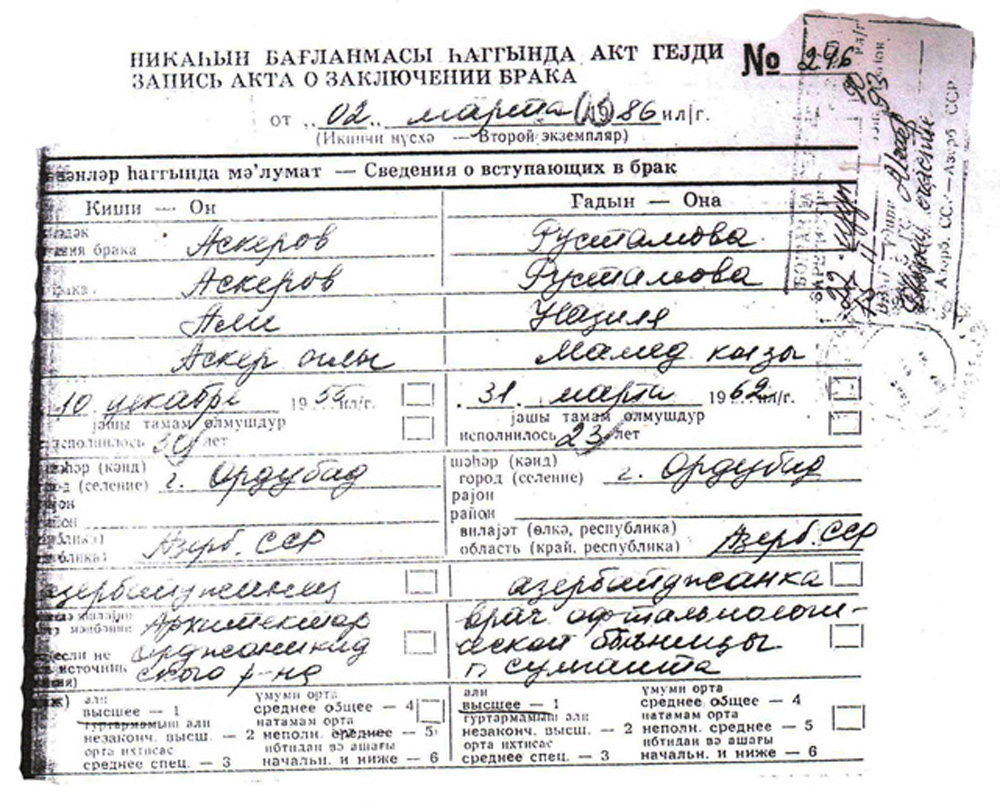 НИКАҺЫН БАҒЛАНМАСЫ ҺАГГЫНДА АКТ ГЕЈДИ № 296
ЗАПИСЬ АКТА О ЗАКЛЮЧЕНИИ БРАКА
от „02„ марта (19)86 ил/г.
(Икинчи нүсхә — Второй экземпляр)
һаггында мә'лумат — Сведения о вступающих в брак
Киши — Он Гадын — Она
брака Аскеров Рустамова
Аскеров Рустамова
Али Назиля
Аскер оглы Мамед кызы
10 декабря 1955 ил/г. 31 марта 1962 ил/г.
јашы тамам олмушдур јашы тамам олмушдур
исполнилось 30 лет исполнилось 23 лет
шәһәр (кәнд)
(селение) г. Ордубад город (селение) г. Ордубад
рајон
район
вилајәт (өлкә, республика)
Азерб. ССР область (край, республика) Азерб. ССР
азербайджанец азербайджанка
Архитектор врач офтальмологи-
орджоникид ческой больницы
ского р-на г. Сумгаита
али үмуми орта али үмуми орта
высшее — 1 среднее общее — 4 высшее — 1 среднее общее — 4
гуртармамыш али натамам орта гуртармамыш али натамам орта
незаконч. высш. — 2 неполн. среднее — 5 незаконч. высш. — 2 неполн. среднее — 5
орта ихтисас ибтидаи вә ашағы орта ихтисас ибтидаи вә ашағы
среднее спец. — 3 начальн. и ниже — 6 среднее спец. — 3 начальн. и ниже — 6